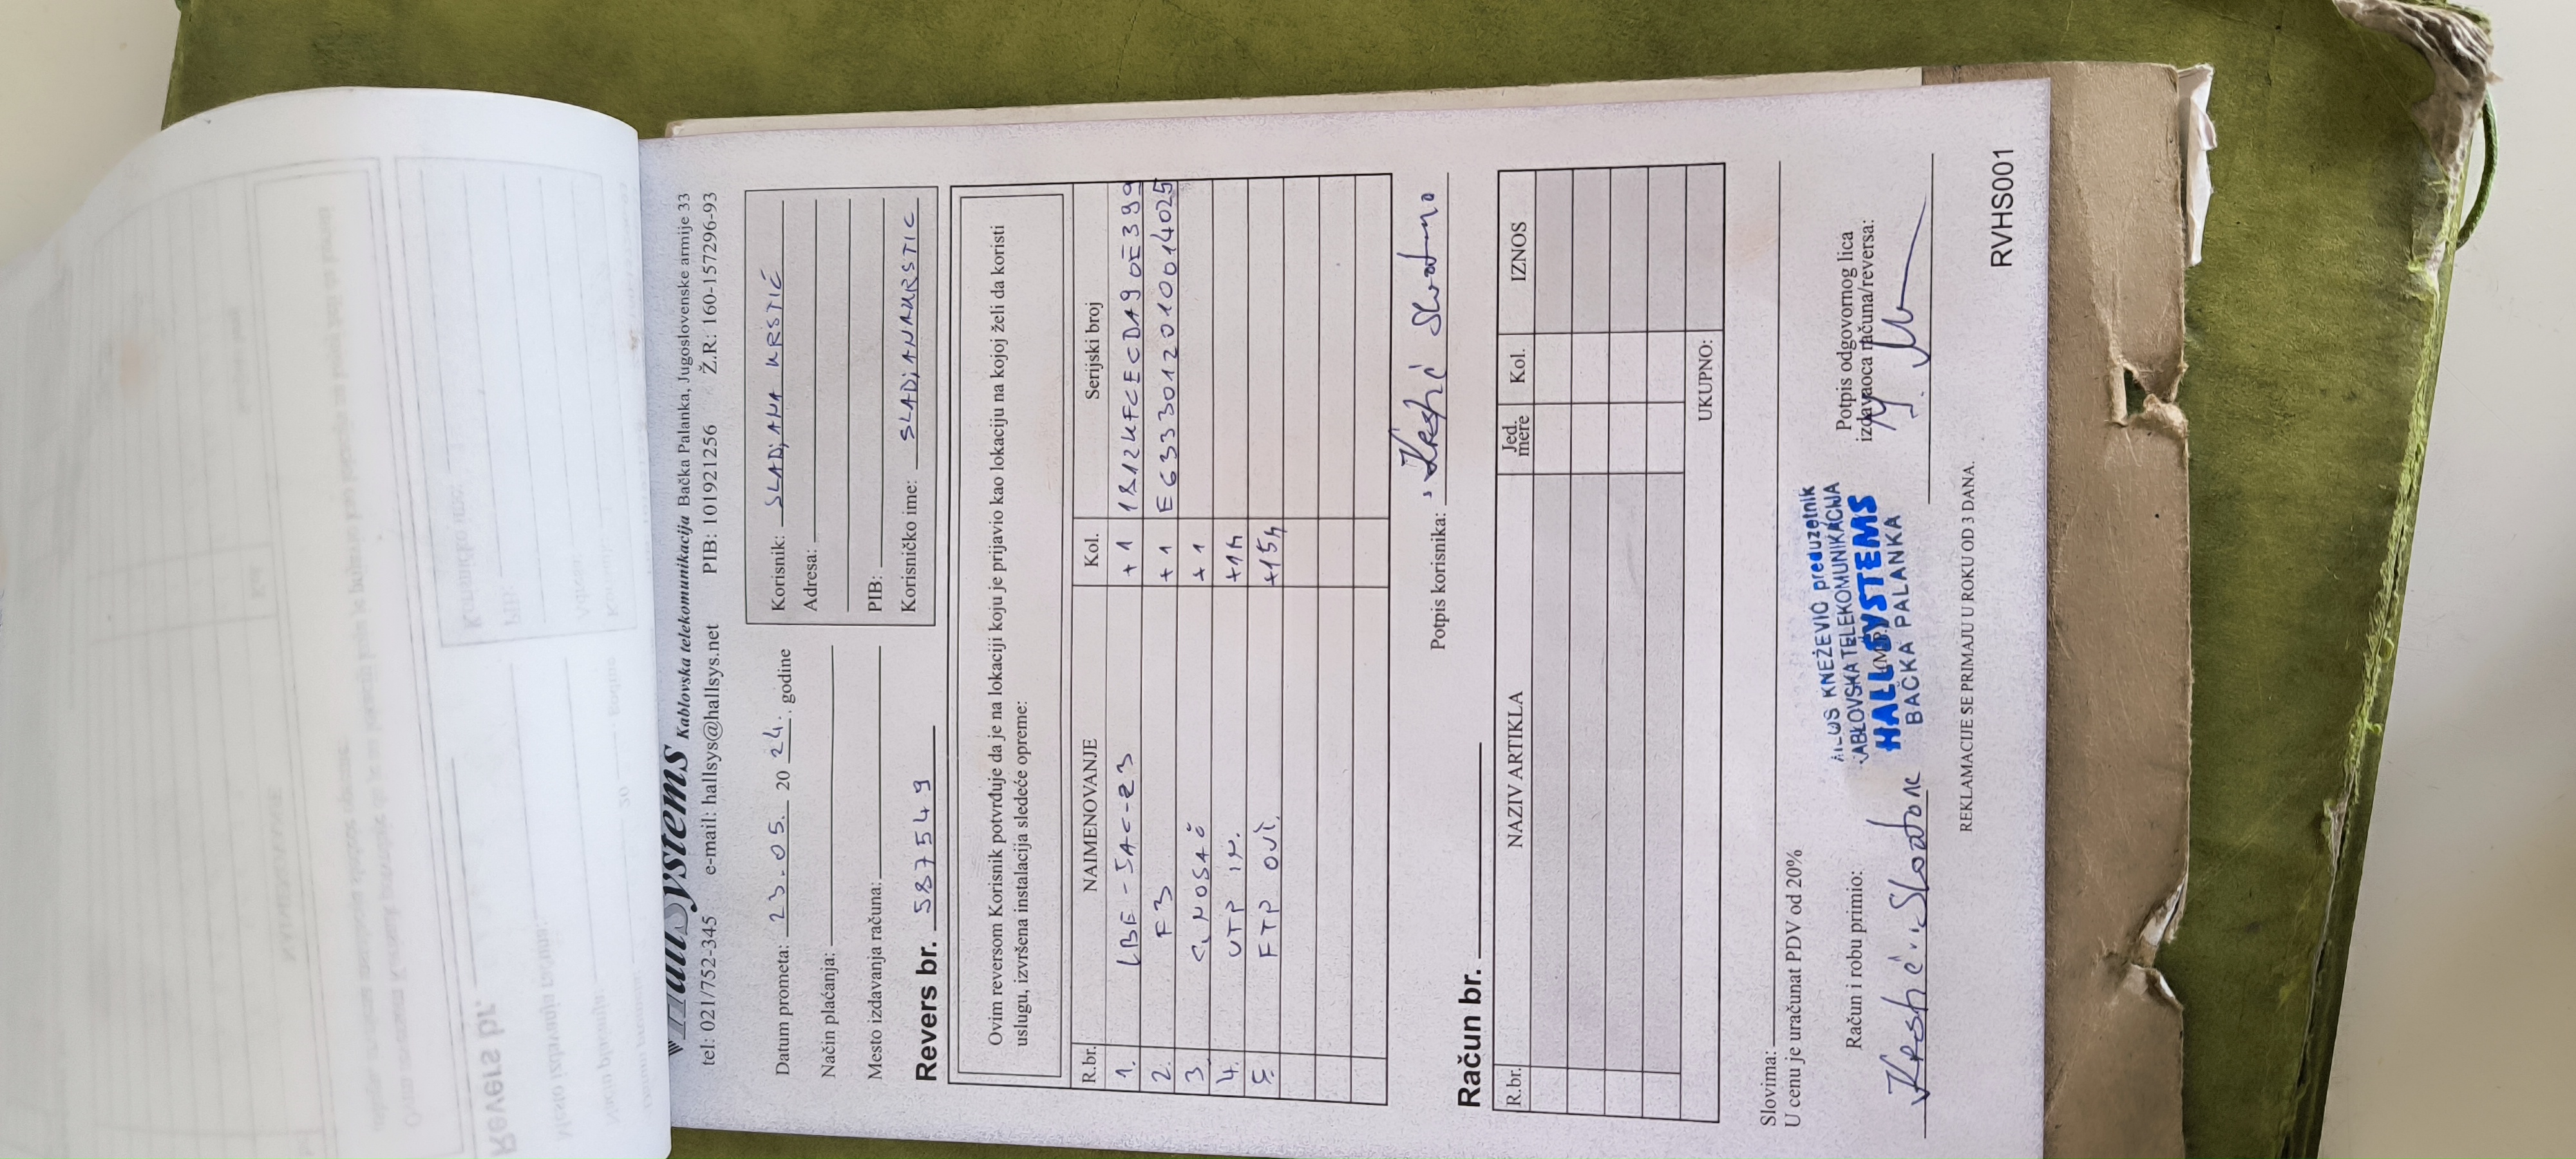 HallSystems Kablovska telekomunikacija Bačka Palanka, Jugoslovenske armije 33
tel: 021/752-345 e-mail: hallsys@hallsys.net PIB: 101921256 Ž.R.: 160-157296-93
Datum prometa: 23.05. 20 24. godine
Način plaćanja:
Mesto izdavanja računa:
Korisnik: SLADJANA KRSTIĆ
Adresa:
PIB:
Korisničko ime: SLADJANAKRSTIC
Revers br. 587549
Ovim reversom Korisnik potvrđuje da je na lokaciji koju je prijavio kao lokaciju na kojoj želi da koristi
uslugu, izvršena instalacija sledeće opreme:
R.br. NAIMENOVANJE Kol. Serijski broj
1. LBE-5AC-23 +1
2. F3 +1 E6333012010014025
3. G. NOSAČ +1
4. UTP IN. +1m
5. FTP OUT. +15m
Potpis korisnika: Krstić Slađana
Račun br.
R.br. NAZIV ARTIKLA Jed. mere Kol. IZNOS
UKUPNO:
Slovima:
U cenu je uračunat PDV od 20%
Račun i robu primio:
Krstić Slađana
KNEŽEVIĆ preduzetnik
KABLOVSKA TELEKOMUNIKACIJA
HALL SYSTEMS
BAČKA PALANKA
(M.P.)
Potpis odgovornog lica
izdavaoca računa/reversa:
REKLAMACIJE SE PRIMAJU U ROKU OD 3 DANA.
RVHS001